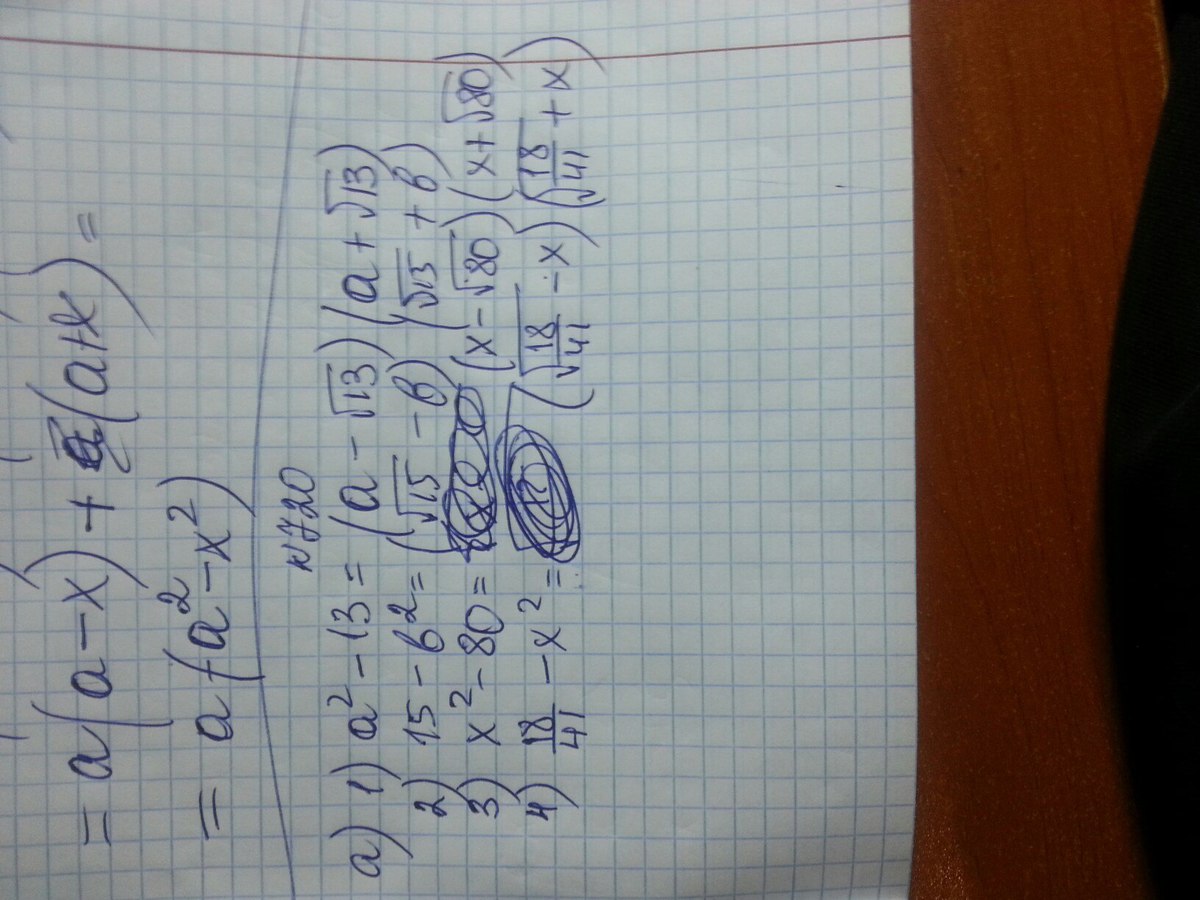 = a(a-x) + a(a+x) =
= a(a²-x²)
№720
а) 1) a² - 13 = (a - √13)(a + √13)
2) 15 - b² = (√15 - b)(√15 + b)
3) x² - 80 = (x - √80)(x + √80)
4) 18/41 - x² = (√18/41 - x)(√18/41 + x)